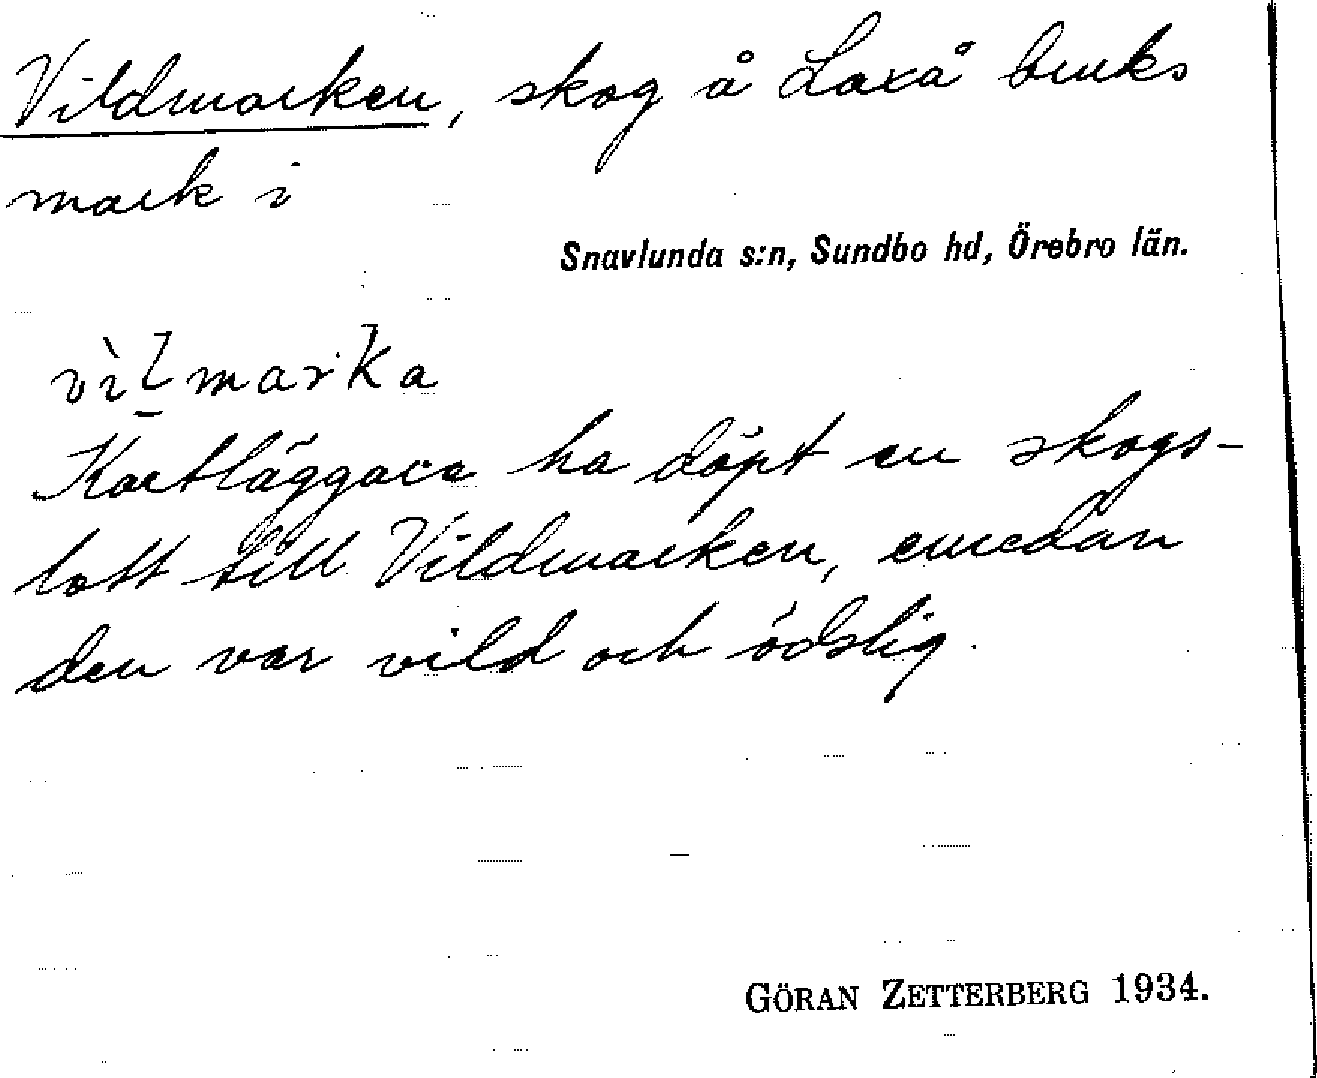 Vildmarken, skog å Laxå bruks
mark i
Snavlunda s:n, Sundbo hd, Örebro län.
vìlmarka
Kartläggare ha döpt en skogs-
lott till Vildmarken, emedan
den var vild och ödslig.
GÖRAN ZETTERBERG 1934.